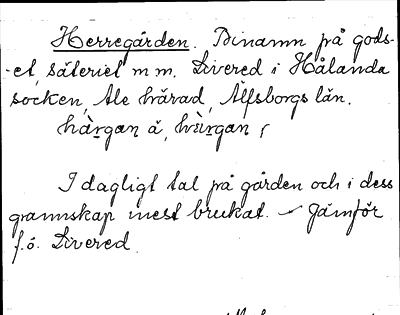 Herregården. Binamn på gods-
-et, säteriet m m. Livered i Hålanda
socken, Ale härad, Älfsborgs län.
hàrgan å,
I dagligt tal på gården och i dess
grannskap mest brukat. – Jämför
f. ö. Livered